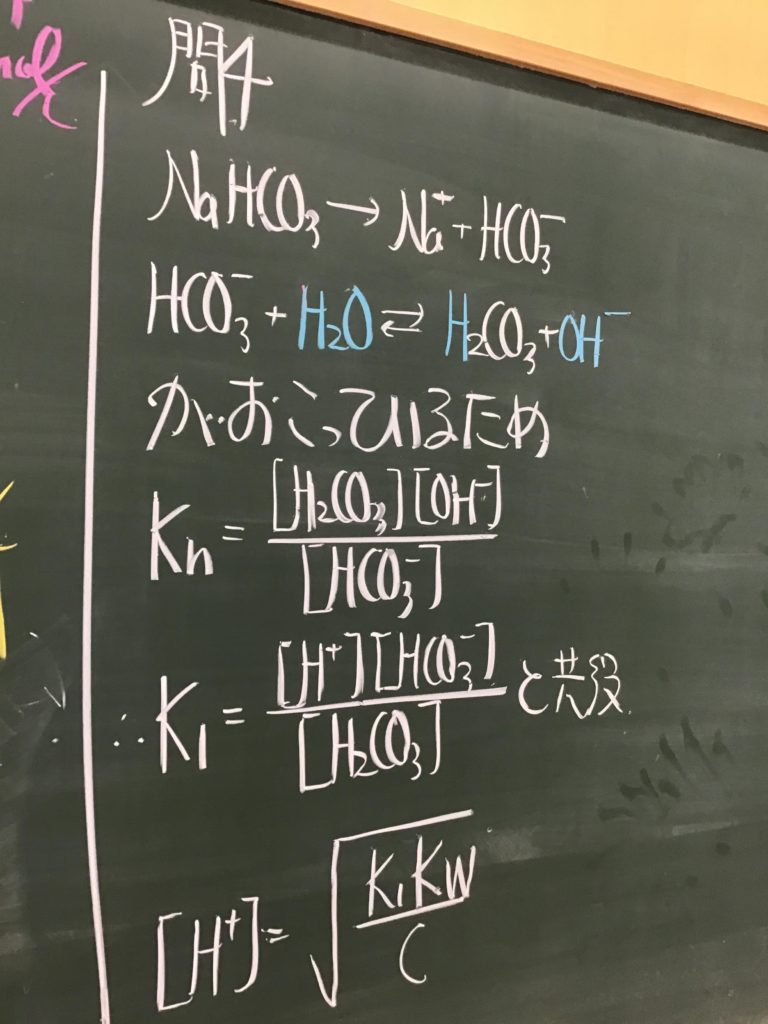 問4
NaHCO₃ → Na⁺ + HCO₃⁻
HCO₃⁻ + H₂O ⇄ H₂CO₃ + OH⁻
がおこっているため
Kh = [H₂CO₃][OH⁻] / [HCO₃⁻]
∴ K₁ = [H⁺][HCO₃⁻] / [H₂CO₃] と
[H⁺] = √(K₁Kw / C)